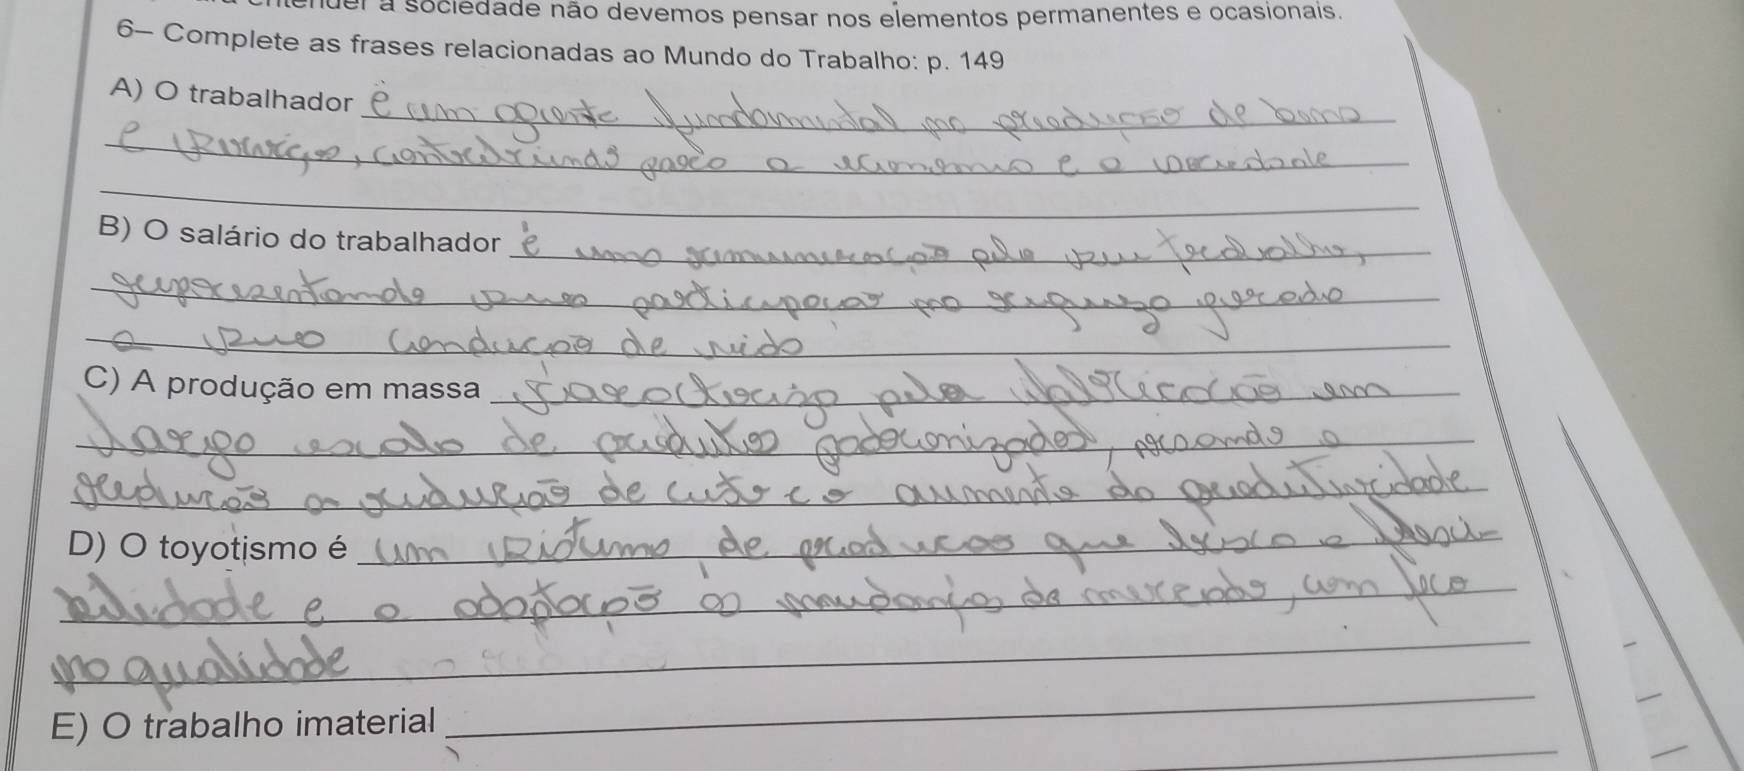 a sociedade não devemos pensar nos elementos permanentes e ocasionais.
6- Complete as frases relacionadas ao Mundo do Trabalho: p. 149
A) O trabalhador é um agente fundamental na produção de bens
e serviços, contribuindo para a economia e a sociedade
B) O salário do trabalhador é uma remuneração pelo seu trabalho,
representando sua participação na riqueza gerada
a sua condução de vida
C) A produção em massa pela fabricação em
larga escala de produtos padronizados, visando a
redução de custo e o aumento do produtividade
D) O toyotismo é um sistema de produção que busca a flexi-
bilidade e a adaptação as mudanças do mercado, com foco
na qualidade
E) O trabalho imaterial